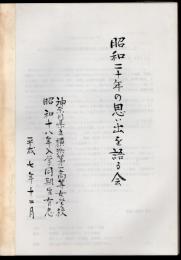 昭和二十年の思い出を語る会
神奈川県立横浜第一高等女学校
昭和十八年入学同期生有志
平成七年十二月